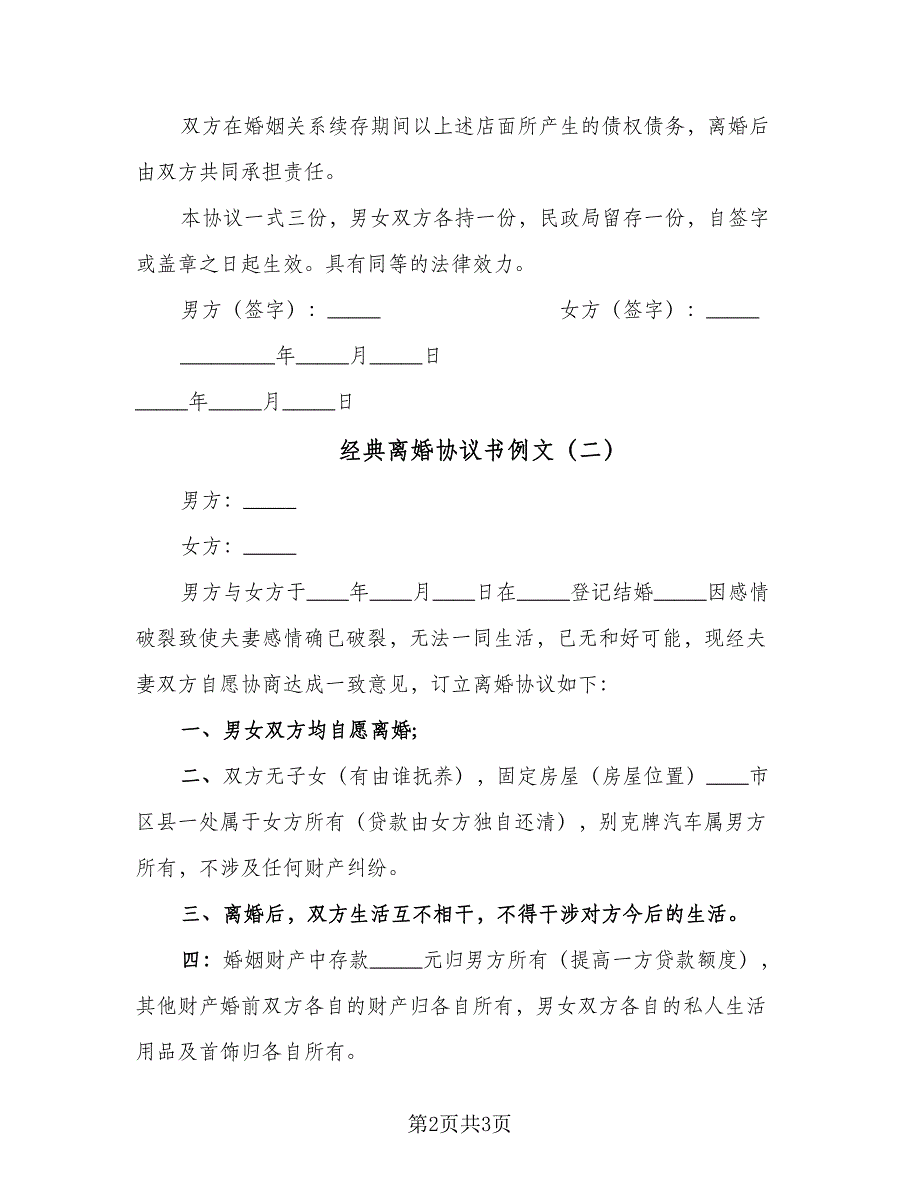 双方在婚姻关系续存期间以上述店面所产生的债权债务，离婚后
由双方共同承担责任。
本协议一式三份，男女双方各持一份，民政局留存一份，自签字
或盖章之日起生效。具有同等的法律效力。
男方（签字）：_____ 女方（签字）：_____
_________年_____月_____日
_____年_____月_____日
经典离婚协议书例文（二）
男方：_____
女方：_____
男方与女方于____年____月____日在_____登记结婚_____因感情
破裂致使夫妻感情确已破裂，无法一同生活，已无和好可能，现经夫
妻双方自愿协商达成一致意见，订立离婚协议如下：
一、男女双方均自愿离婚;
二、双方无子女（有由谁抚养），固定房屋（房屋位置）____市
区县一处属于女方所有（贷款由女方独自还清），别克牌汽车属男方
所有，不涉及任何财产纠纷。
三、离婚后，双方生活互不相干，不得干涉对方今后的生活。
四：婚姻财产中存款_____元归男方所有（提高一方贷款额度），
其他财产婚前双方各自的财产归各自所有，男女双方各自的私人生活
用品及首饰归各自所有。
第2页共3页